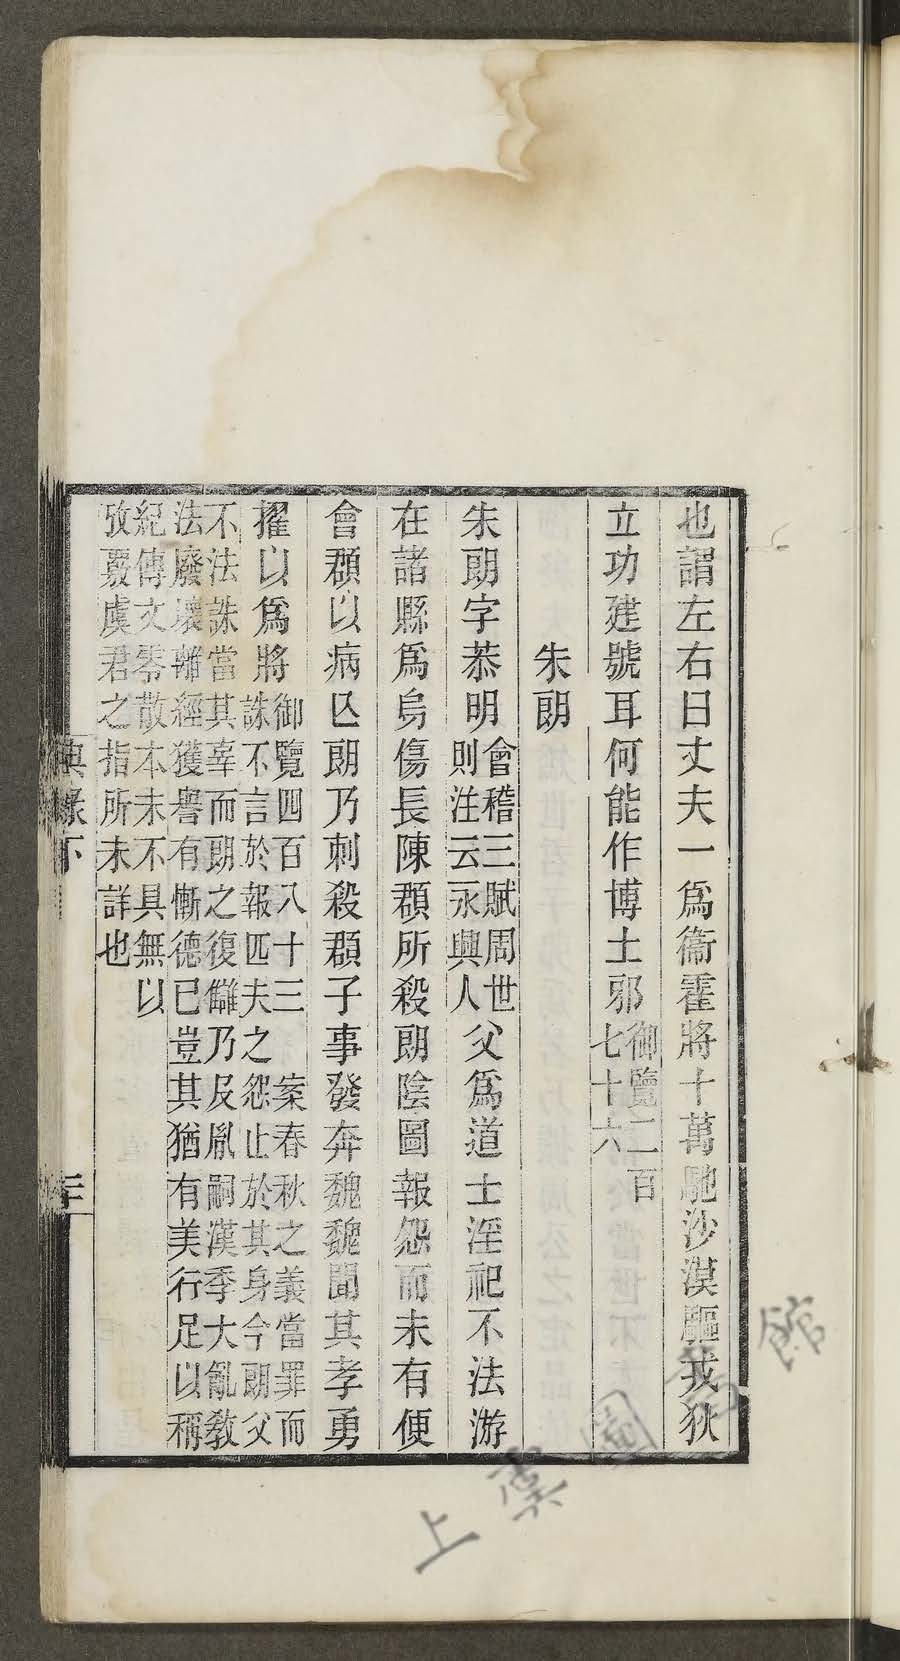 也謂左右曰丈夫一爲衞霍將十萬馳沙漠驅戎狄
立功建號耳何能作博士邪御覽二百
七十六
朱朗
朱朗字恭明會稽三賦周世
則注云永興人父爲道士淫祀不法游
在諸縣爲烏傷長陳頵所殺朗陰圖報怨而未有便
會頵以病亡朗乃刺殺頵子事發奔魏魏聞其孝勇
擢以爲將御覽四百八十三　案春秋之義當罪而
誅不言於報匹夫之怨止於其身今朗父
不法誅當其辜而朗之復讎乃及胤嗣漢季大亂敎
法廢壞離經獲譽有慚德已豈其猶有美行足以稱
紀傳文零散本末不具無以
攷覈虞君之指所未詳也
典錄下
二十
上虞圖書館